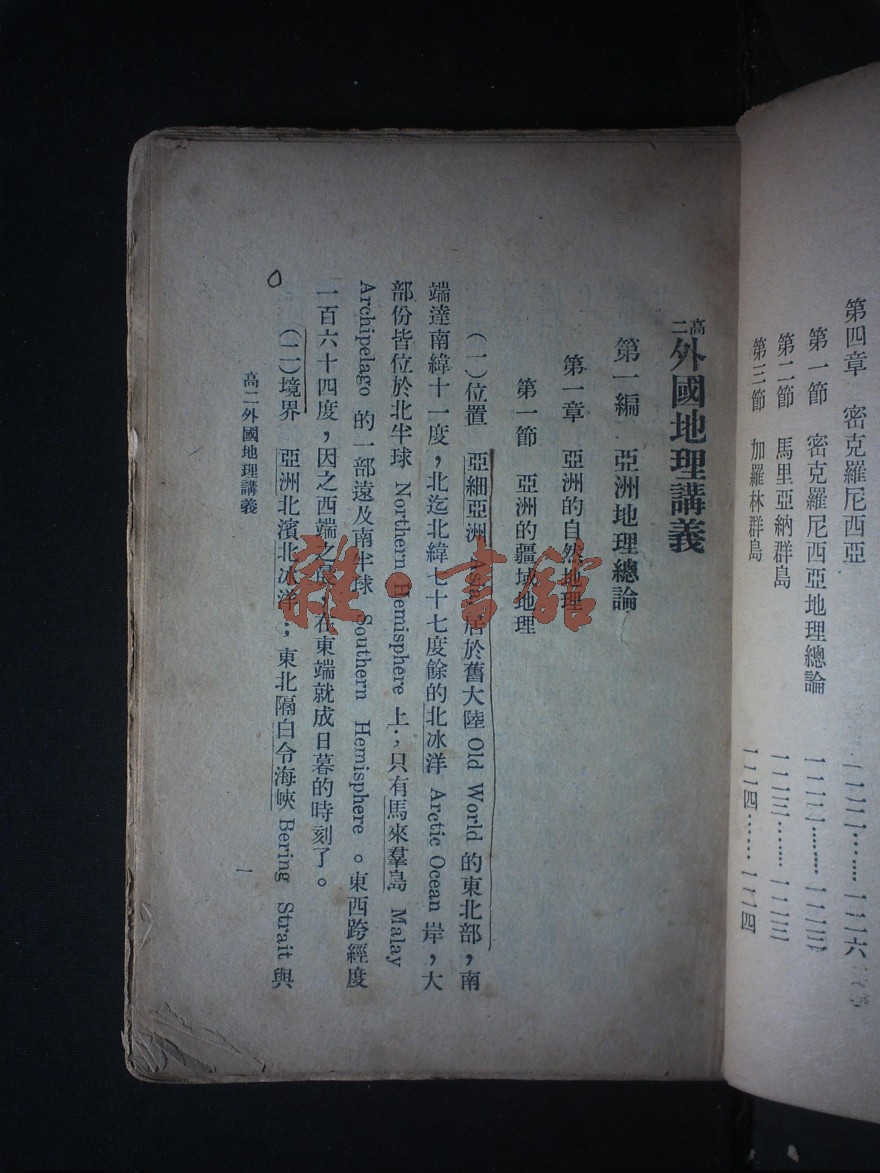 第四章 密克羅尼西亞 一二二……一二六
第一節 密克羅尼西亞地理總論 一二二……一二三
第二節 馬里亞納群島 一二三……一二三
第三節 加羅林群島 一二四……一二四
高二外國地理講義
第一編 亞洲地理總論
第一章 亞洲的自然地理
第一節 亞洲的疆域地理
(一)位置 亞細亞洲 Asia 居於舊大陸 Old World 的東北部，南
端達南緯十一度，北迄北緯七十七度餘的北冰洋 Arctic Ocean 岸，大
部份皆位於北半球 Northern Hemisphere 上；只有馬來羣島 Malay
Archipelago 的一部遠及南半球 Southern Hemisphere 。東西跨經度
一百六十四度，因之西端之晨，在東端就成日暮的時刻了。
(二)境界 亞洲北濱北冰洋；東北隔白令海峽 Bering Strait 與
高二外國地理講義
一
雜·書館